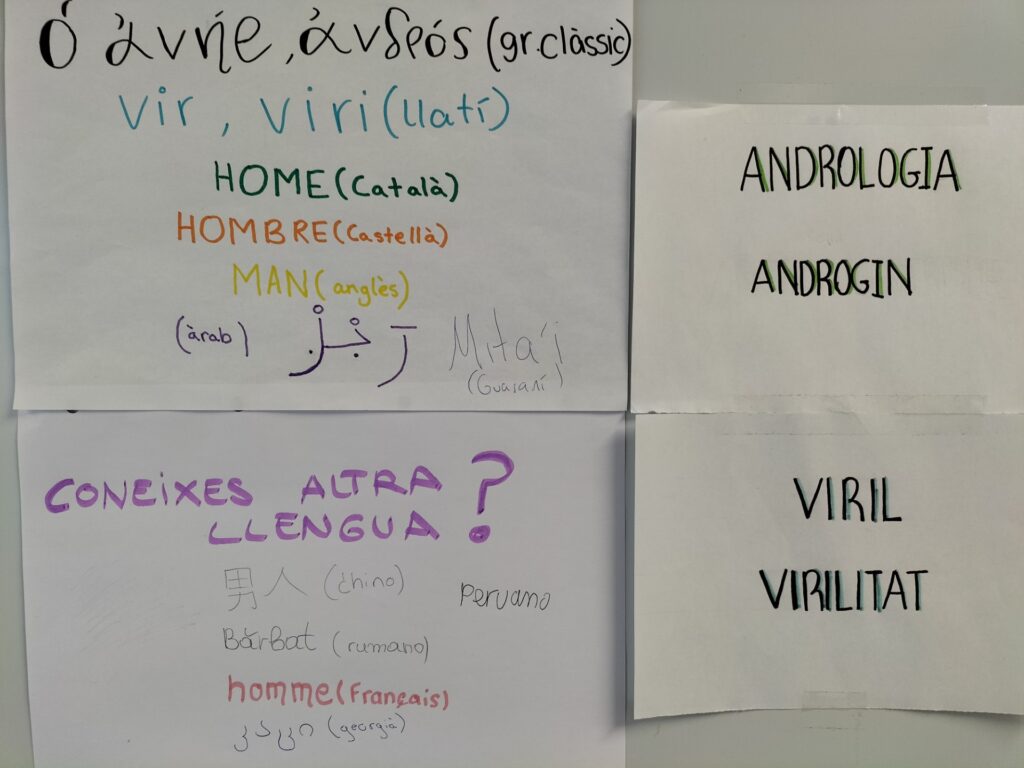 ὁ ἀνήρ, ἀνδρός (gr. clàssic)
vir, viri (llatí)
HOME (Català)
HOMBRE (Castellà)
MAN (anglès)
(àrab) رَجُلْ
Mita'i
(Guaraní)
CONEIXES ALTRA
LLENGUA?
男人 (chino)
Peruano
Bărbat (rumano)
homme (Français)
კაცი (georgià)
ANDROLOGIA
ANDROGIN
VIRIL
VIRILITAT